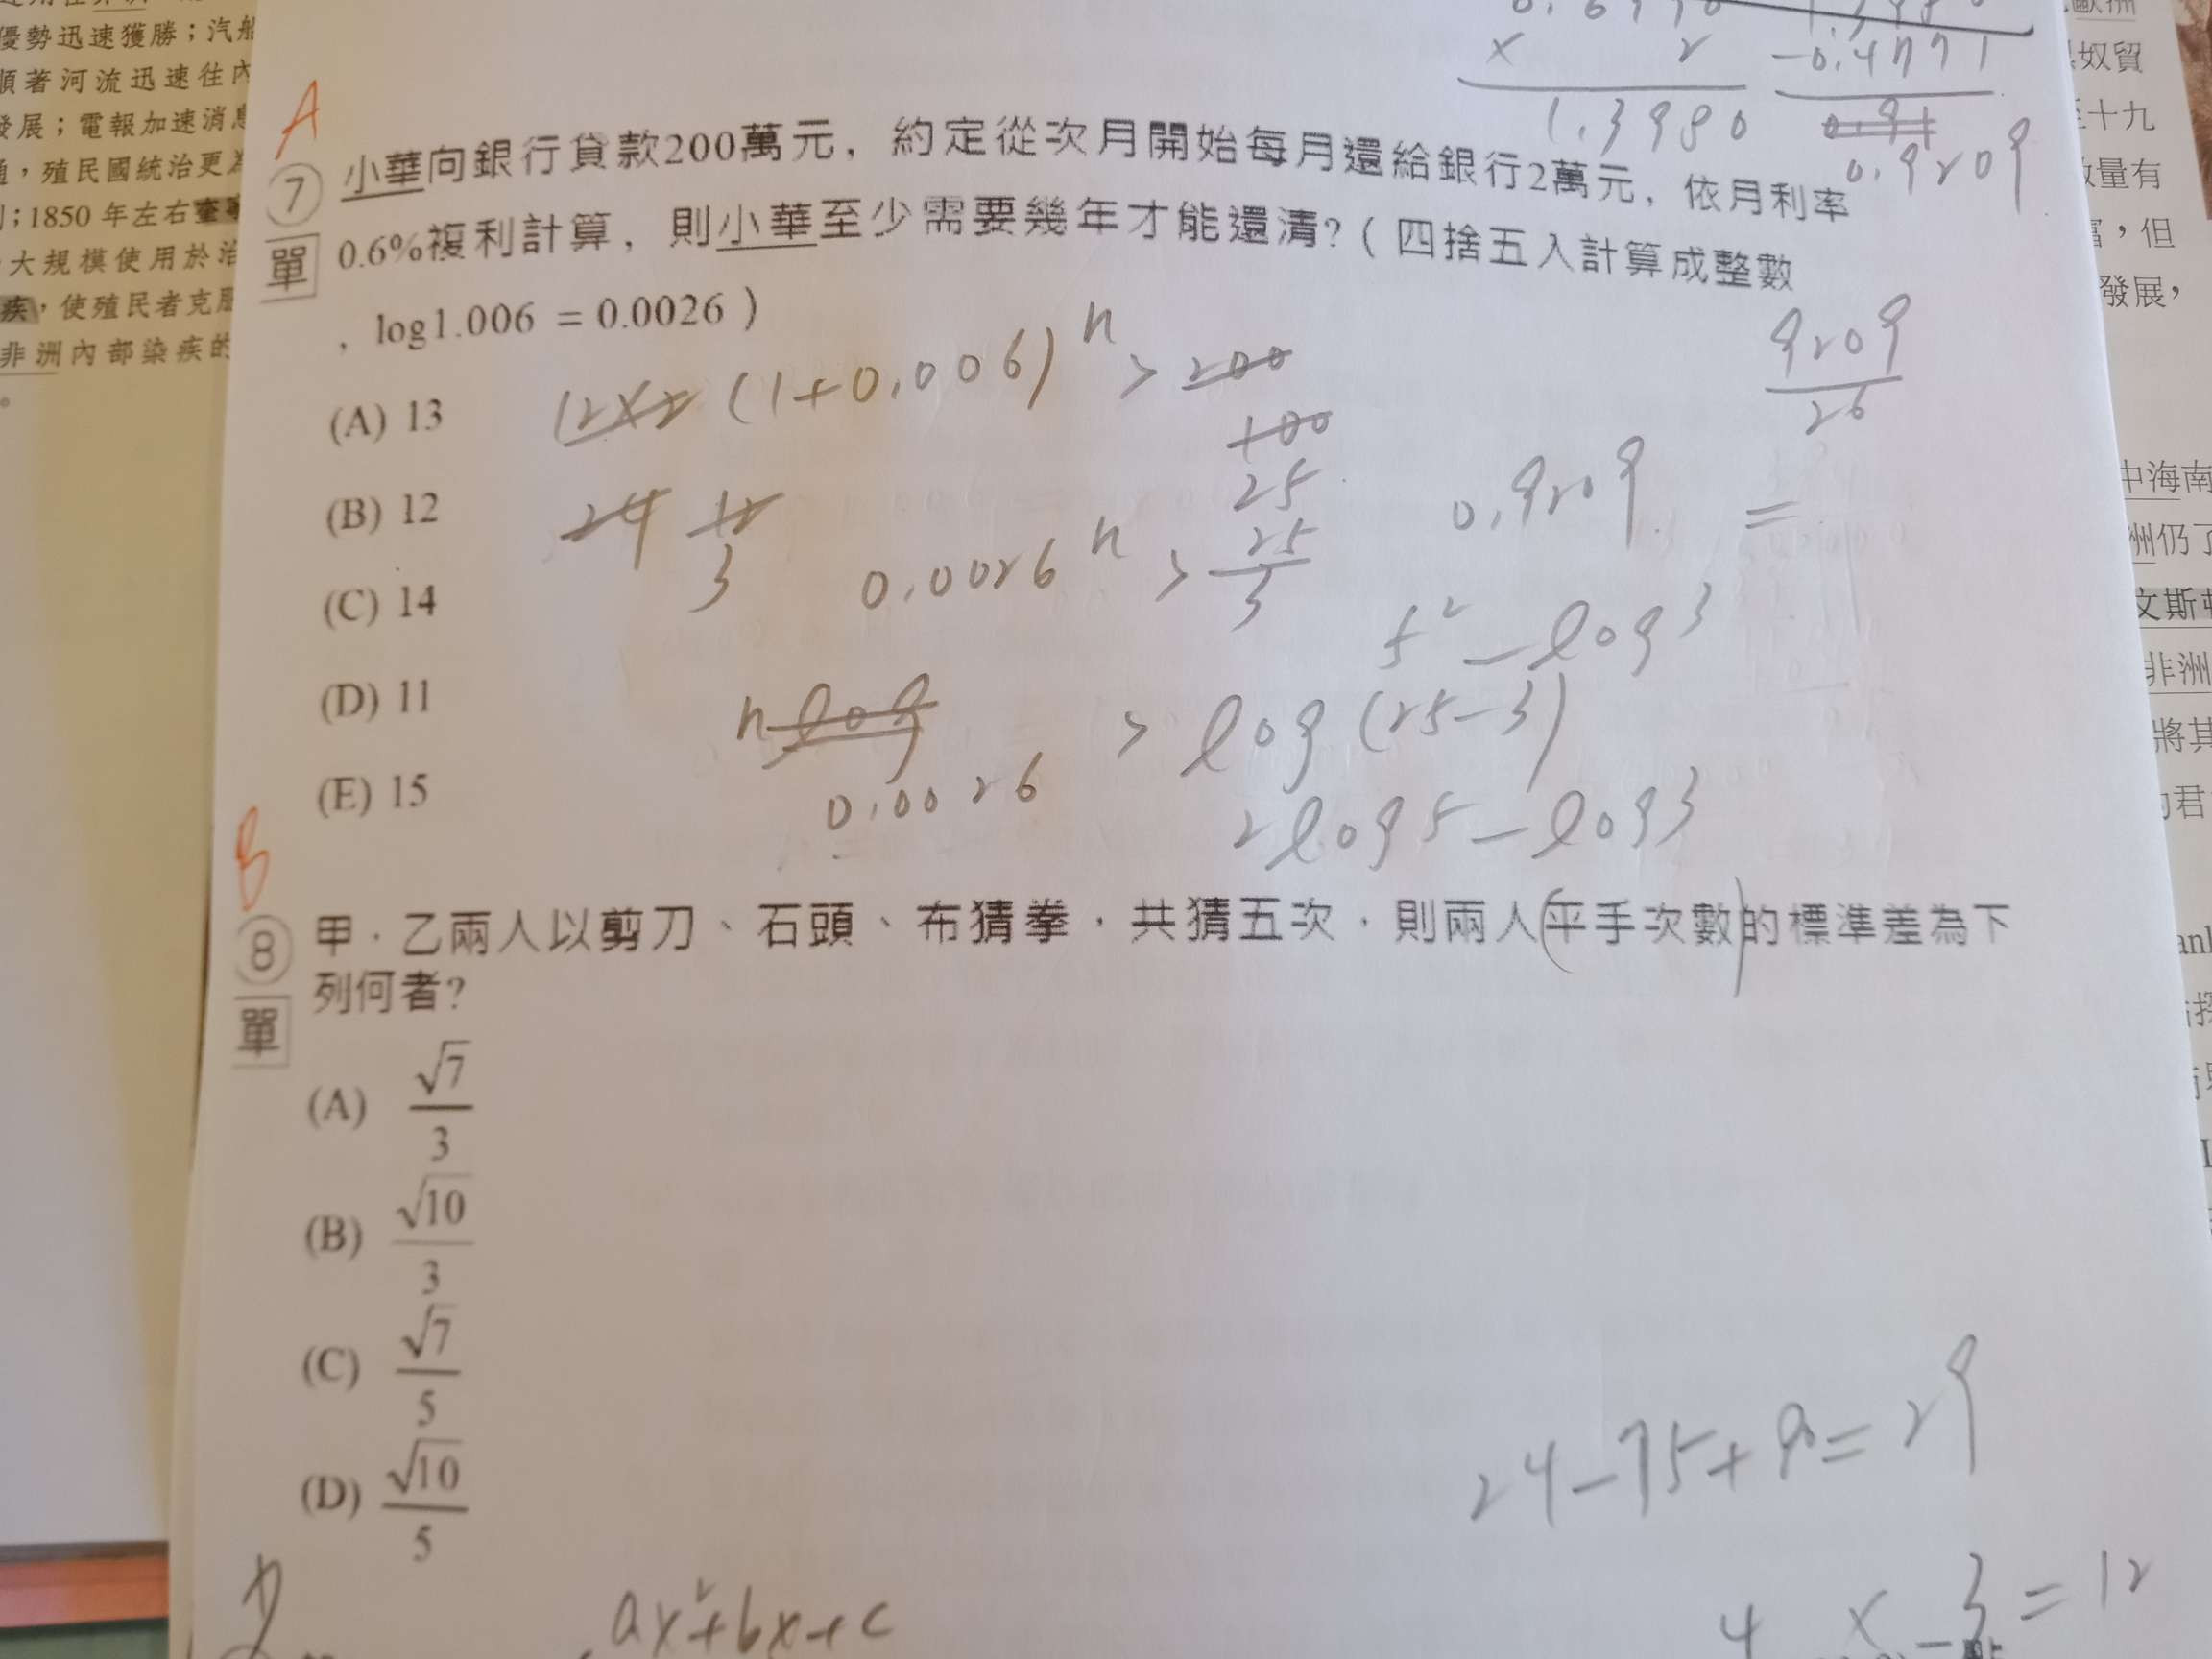 優勢迅速獲勝；汽船
順著河流迅速往內
發展；電報加速消息
通，殖民國統治更為
；1850 年左右奎寧
大規模使用於治
疾，使殖民者克服
非洲內部染疾的
。
× 2
1.3980
-0.4771
0.9209
A
⑦ 小華向銀行貸款200萬元，約定從次月開始每月還給銀行2萬元，依月利率
單 0.6%複利計算，則小華至少需要幾年才能還清?（四捨五入計算成整數
，log1.006 = 0.0026）
(A) 13
(B) 12
(C) 14
(D) 11
(E) 15
12×2 (1+0.006)^n > 200
100
25
24 12
3
0.0026^n > 25/3
0.9209 =
9209/26
5² - log3
n log > log(25-3)
0.0026
2log5 - log3
B
⑧ 甲．乙兩人以剪刀、石頭、布猜拳，共猜五次，則兩人(平手次數)的標準差為下
單 列何者?
(A) √7/3
(B) √10/3
(C) √7/5
(D) √10/5
24-75+9=29
4 × 3 = 12
ax²+bx+c
歐洲
奴貿
至十九
數量有
富，但
發展，
中海南
洲仍了
文斯頓
非洲
將其
君